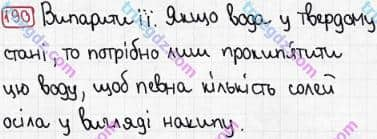 190 Випарити її. Якщо вода у твердому
стані, то потрібно лиш прокип'ятити
цю воду, щоб певна кількість солей
осіла у вигляді накипу.